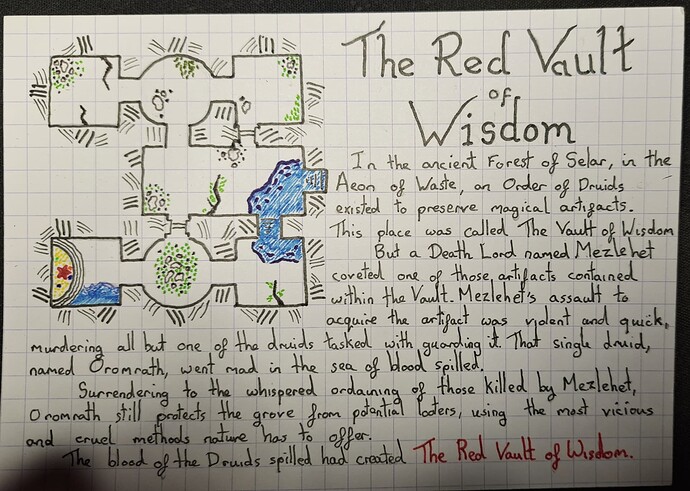 The Red Vault
of
Wisdom
In the ancient Forest of Selar, in the
Aeon of Waste, an Order of Druids
existed to preserve magical artifacts.
This place was called The Vault of Wisdom
But a Death Lord named Mezlehet
coveted one of those artifacts contained
within the Vault. Mezlehet's assault to
acquire the artifact was violent and quick,
murdering all but one of the druids tasked with guarding it. That single druid,
named Oromrath, went mad in the sea of blood spilled.
Surrendering to the whispered ordaining of those killed by Mezlehet,
Oromrath still protects the grove from potential looters, using the most vicious
and cruel methods nature has to offer.
The blood of the Druids spilled had created The Red Vault of Wisdom.